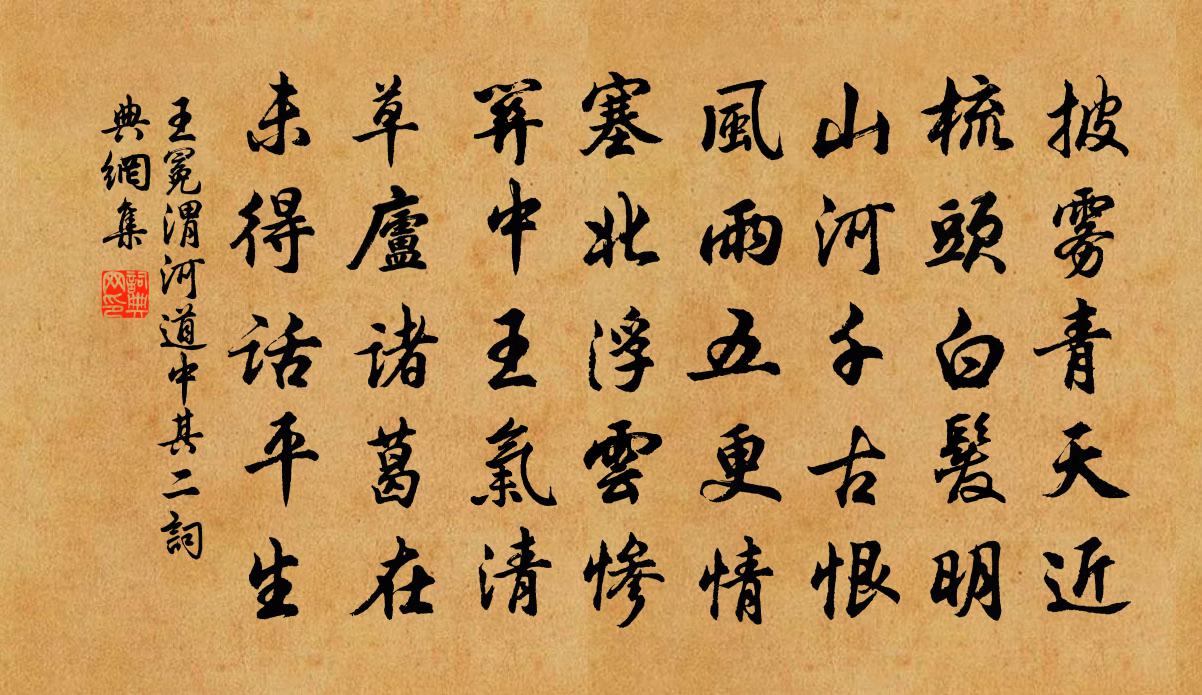 披雾青天近
梳頭白髮明
山河千古恨
風雨五更情
塞北浮雲惨
關中王氣清
草廬諸葛在
未得話平生
王冕渭河道中其二詞
典網集
詞典
网印